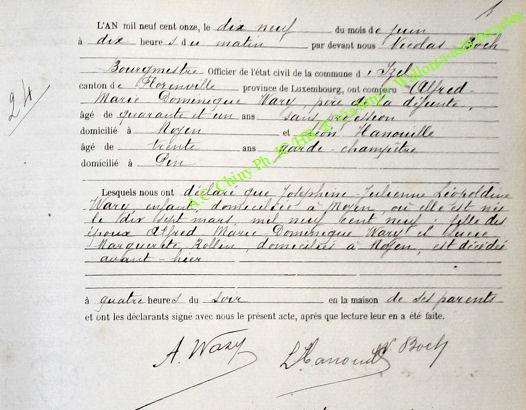 L'AN mil neuf cent onze, le dix neuf du mois de juin
à dix heures du matin par devant nous Nicolas Boch
Bourgmestre Officier de l'état civil de la commune d'Izel
canton de Florenville province de Luxembourg, ont comparu Alfred
Marie Dominique Wary, père de la défunte,
âgé de quarante et un ans sans profession
domicilié à Moyen et Léon Hanouille
âgé de trente ans garde-champêtre
domicilié à Pin
24
Lesquels nous ont déclaré que Joséphine-Julienne Léopoldine
Wary, enfant, domiciliée à Moyen, où elle est née
le dix sept mars, mil neuf cent neuf, fille des
époux Alfred Marie Dominique Wary et Lucie
Marguerite Rollin, domiciliés à Moyen, est décédée
avant-hier
à quatre heures du soir en la maison de ses parents
et ont les déclarants signé avec nous le présent acte, après que lecture leur en a été faite.
A. Wary
L. Hanouille N Boch
A.C. Chiny Ph.